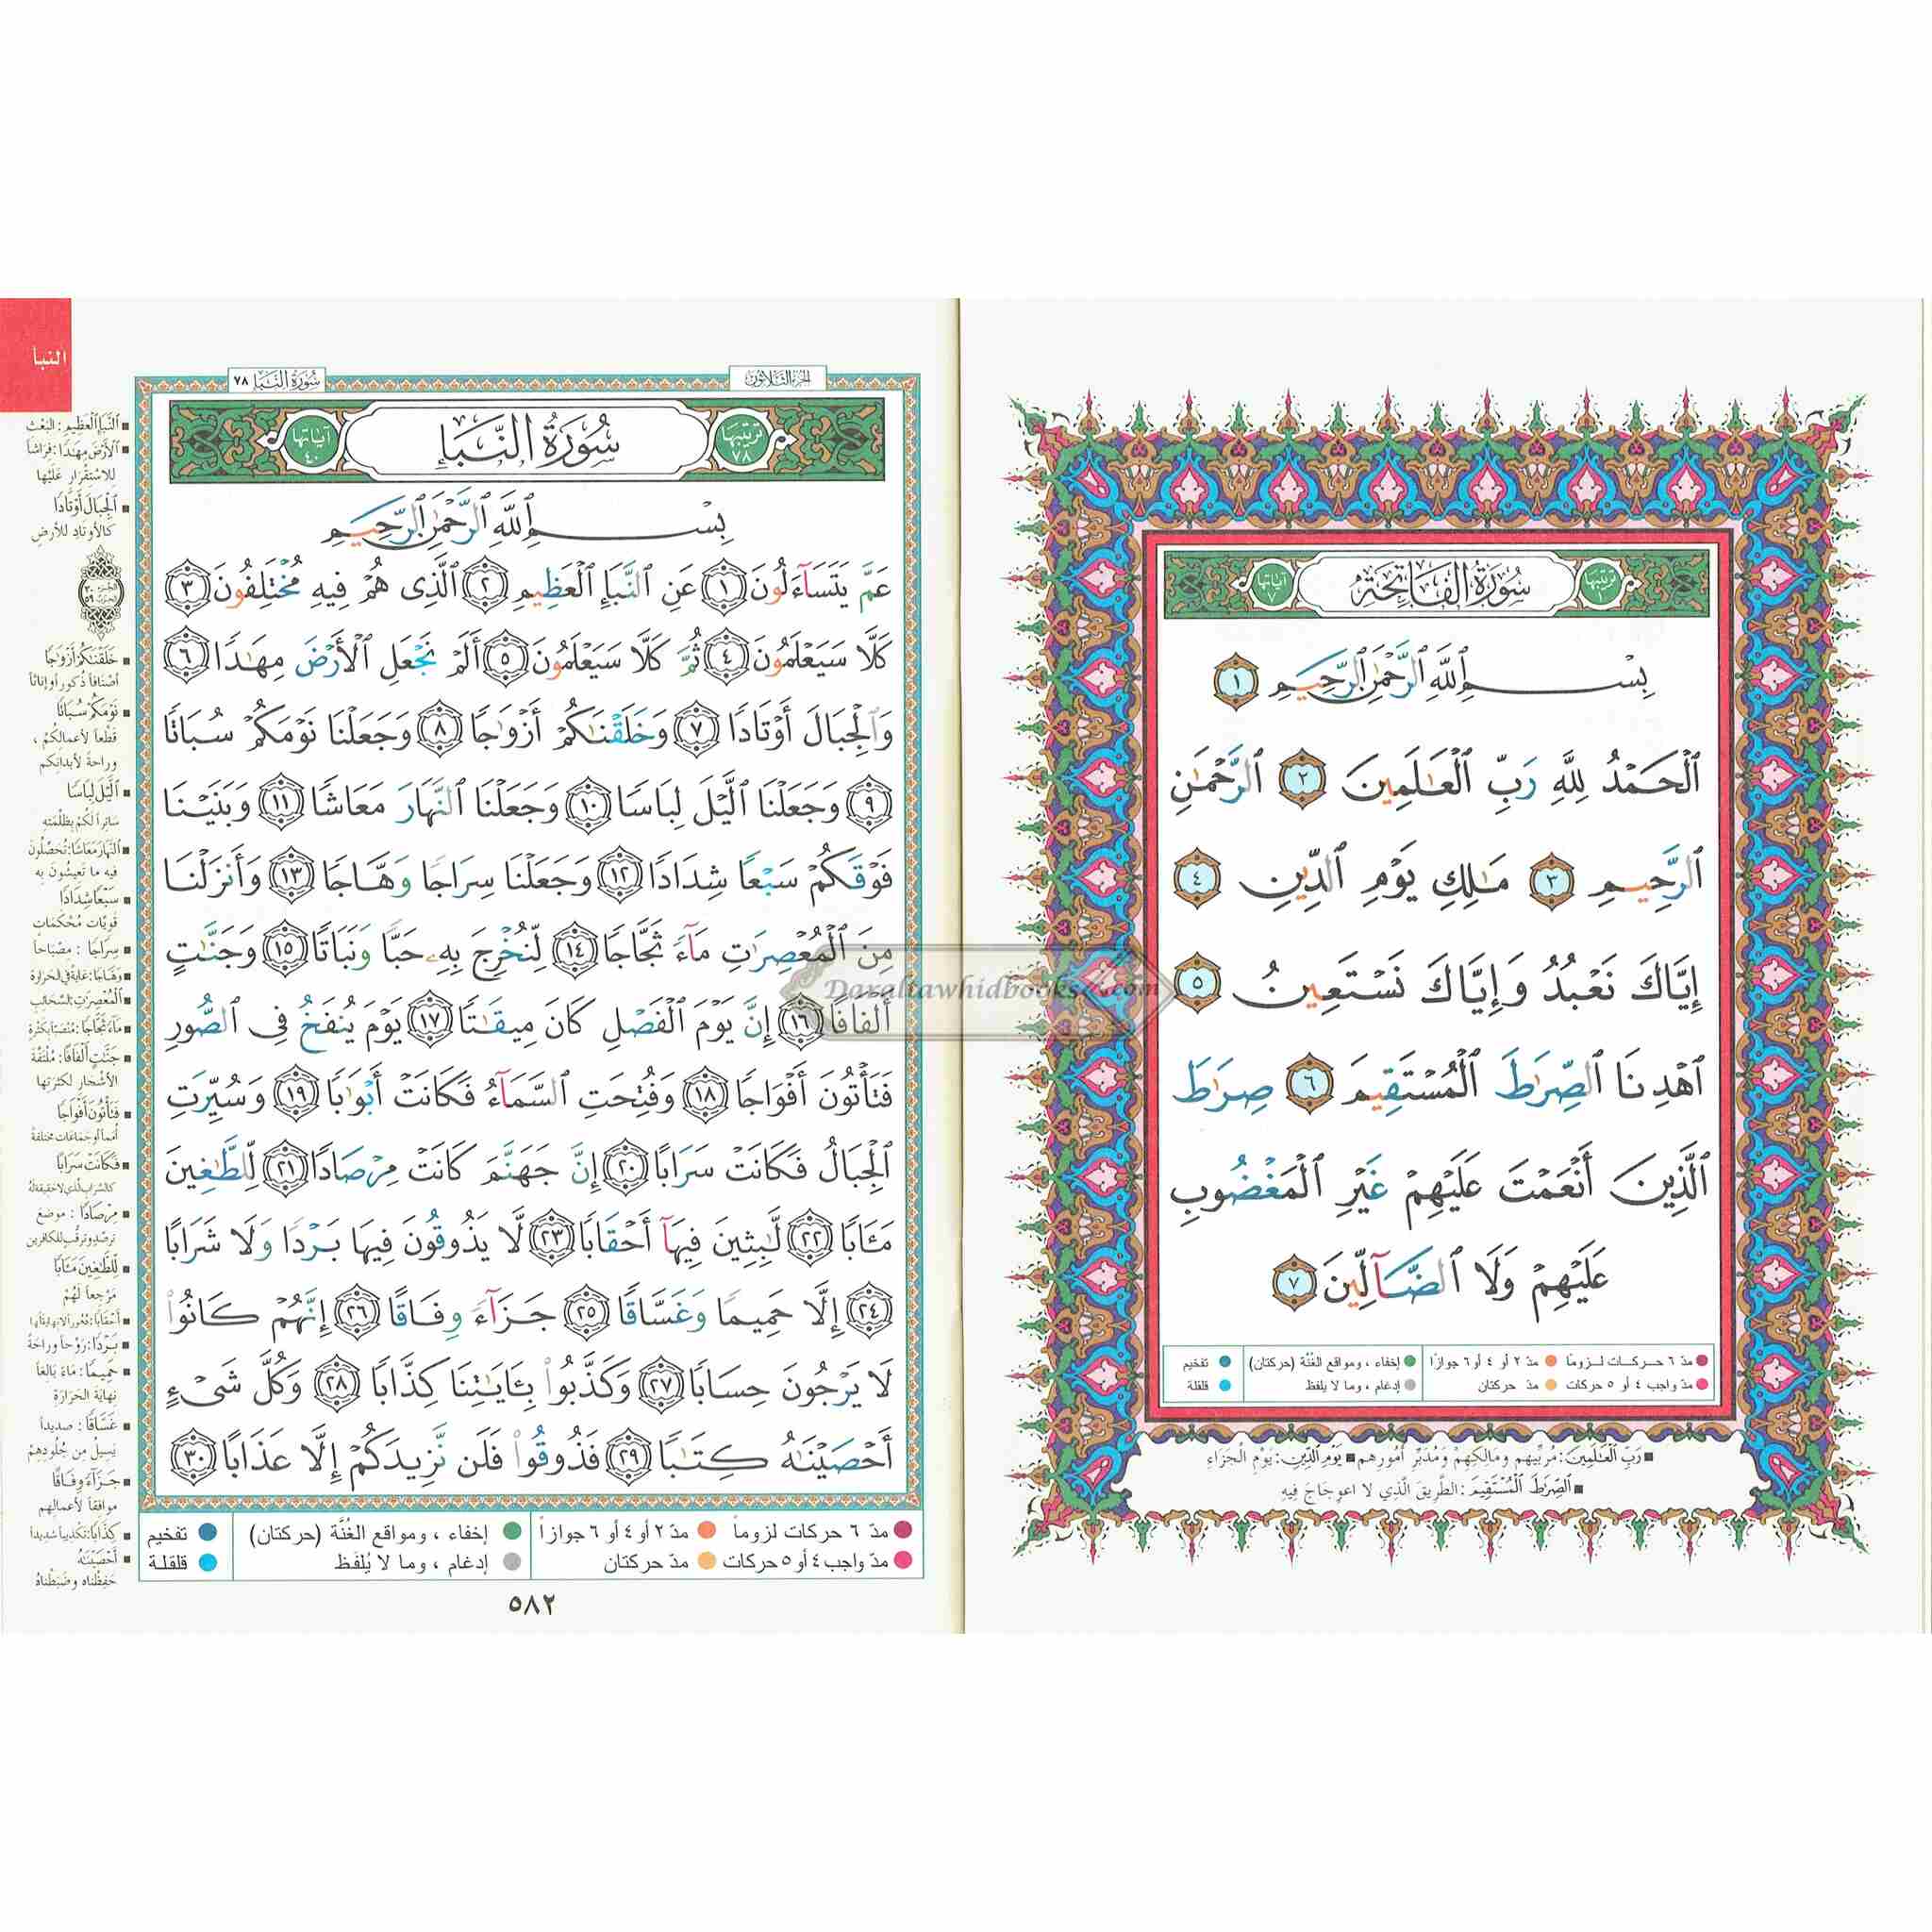 سُورَةُ الفَاتِحَةِ
ترتيبها ١
آياتها ٧
بِسْمِ ٱللَّهِ ٱلرَّحْمَٰنِ ٱلرَّحِيمِ ١
ٱلْحَمْدُ لِلَّهِ رَبِّ ٱلْعَٰلَمِينَ ٢ ٱلرَّحْمَٰنِ
ٱلرَّحِيمِ ٣ مَٰلِكِ يَوْمِ ٱلدِّينِ ٤
إِيَّاكَ نَعْبُدُ وَإِيَّاكَ نَسْتَعِينُ ٥
ٱهْدِنَا ٱلصِّرَٰطَ ٱلْمُسْتَقِيمَ ٦ صِرَٰطَ
ٱلَّذِينَ أَنْعَمْتَ عَلَيْهِمْ غَيْرِ ٱلْمَغْضُوبِ
عَلَيْهِمْ وَلَا ٱلضَّآلِّينَ ٧
مدّ ٦ حركات لزوماً مدّ ٢ أو ٤ أو ٦ جوازاً إخفاء ، ومواقع الغُنَّة (حركتان) تفخيم
مدّ واجب ٤ أو ٥ حركات مدّ حركتان إدغام ، وما لا يُلفَظ قلقلة
رَبِّ ٱلْعَٰلَمِينَ: مُرَبِّيهم ومالِكِهِمْ ومُدَبِّرِ أُمُورِهم يَوْمِ ٱلدِّينِ: يَوْمِ الْجَزاءِ
ٱلصِّرَٰطَ ٱلْمُسْتَقِيمَ: الطَّرِيقَ الَّذِي لا اعْوِجَاجَ فِيهِ
النبأ
الجزء الثلاثون
سُورَةُ النَّبَإِ ٧٨
ترتيبها ٧٨
سُورَةُ النَّبَإِ
آياتها ٤٠
بِسْمِ ٱللَّهِ ٱلرَّحْمَٰنِ ٱلرَّحِيمِ
عَمَّ يَتَسَآءَلُونَ ١ عَنِ ٱلنَّبَإِ ٱلْعَظِيمِ ٢ ٱلَّذِى هُمْ فِيهِ مُخْتَلِفُونَ ٣
كَلَّا سَيَعْلَمُونَ ٤ ثُمَّ كَلَّا سَيَعْلَمُونَ ٥ أَلَمْ نَجْعَلِ ٱلْأَرْضَ مِهَٰدًا ٦
وَٱلْجِبَالَ أَوْتَادًا ٧ وَخَلَقْنَٰكُمْ أَزْوَٰجًا ٨ وَجَعَلْنَا نَوْمَكُمْ سُبَاتًا
٩ وَجَعَلْنَا ٱلَّيْلَ لِبَاسًا ١٠ وَجَعَلْنَا ٱلنَّهَارَ مَعَاشًا ١١ وَبَنَيْنَا
فَوْقَكُمْ سَبْعًا شِدَادًا ١٢ وَجَعَلْنَا سِرَاجًا وَهَّاجًا ١٣ وَأَنزَلْنَا
مِنَ ٱلْمُعْصِرَٰتِ مَآءً ثَجَّاجًا ١٤ لِّنُخْرِجَ بِهِۦ حَبًّا وَنَبَاتًا ١٥ وَجَنَّٰتٍ
أَلْفَافًا ١٦ إِنَّ يَوْمَ ٱلْفَصْلِ كَانَ مِيقَٰتًا ١٧ يَوْمَ يُنفَخُ فِى ٱلصُّورِ
فَتَأْتُونَ أَفْوَاجًا ١٨ وَفُتِحَتِ ٱلسَّمَآءُ فَكَانَتْ أَبْوَٰبًا ١٩ وَسُيِّرَتِ
ٱلْجِبَالُ فَكَانَتْ سَرَابًا ٢٠ إِنَّ جَهَنَّمَ كَانَتْ مِرْصَادًا ٢١ لِّلطَّٰغِينَ
مَـَٔابًا ٢٢ لَّٰبِثِينَ فِيهَآ أَحْقَابًا ٢٣ لَّا يَذُوقُونَ فِيهَا بَرْدًا وَلَا شَرَابًا
٢٤ إِلَّا حَمِيمًا وَغَسَّاقًا ٢٥ جَزَآءً وِفَاقًا ٢٦ إِنَّهُمْ كَانُوا۟
لَا يَرْجُونَ حِسَابًا ٢٧ وَكَذَّبُوا۟ بِـَٔايَٰتِنَا كِذَّابًا ٢٨ وَكُلَّ شَىْءٍ
أَحْصَيْنَٰهُ كِتَٰبًا ٢٩ فَذُوقُوا۟ فَلَن نَّزِيدَكُمْ إِلَّا عَذَابًا ٣٠
مدّ ٦ حركات لزوماً مدّ ٢ أو ٤ أو ٦ جوازاً إخفاء ، ومواقع الغُنَّة (حركتان) تفخيم
مدّ واجب ٤ أو ٥ حركات مدّ حركتان إدغام ، وما لا يُلفَظ قلقلة
٥٨٢
ٱلنَّبَإِ ٱلْعَظِيمِ: البَعْث
ٱلْأَرْضَ مِهَٰدًا: فِرَاشاً
للاسْتِقْرارِ عَلَيْها
ٱلْجِبَالَ أَوْتَادًا
كالأَوتَادِ للأرضِ
الجزء ٣٠
الحزب ٥٩
خَلَقْنَٰكُمْ أَزْوَٰجًا
أصْنَافاً ذُكُوراً وإنَاثاً
نَوْمَكُمْ سُبَاتًا
قَطْعاً لأعمالِكُمْ ،
وراحةً لأبدانِكم
ٱلَّيْلَ لِبَاسًا
سَاتِراً لَكُمْ بِظُلْمَتِه
ٱلنَّهَارَ مَعَاشًا: تُحَصِّلُونَ
فِيه ما تَعِيشُونَ بِه
سَبْعًا شِدَادًا
قَوِيَّات مُحْكَمَات
سِرَاجًا : مِصْبَاحاً
وَهَّاجًا: غَايَةً في الحَرَارَة
ٱلْمُعْصِرَٰتِ: السَّحَائِب
مَآءً ثَجَّاجًا: مُنْصَبّاً بكَثْرَةٍ
جَنَّٰتٍ أَلْفَافًا: مُلْتَفَّةَ
الأَشْجارِ لكَثْرَتِها
فَتَأْتُونَ أَفْوَاجًا
أُمَماً أو جَمَاعَات مختلفة
فَكَانَتْ سَرَابًا
كالسَّرَابِ الَّذي لا حَقِيقَةَ لَهُ
مِرْصَادًا : موضِعَ
تَرَصُّدٍ وترَقُّبٍ للكَافِرين
لِّلطَّٰغِينَ مَـَٔابًا
مَرْجِعاً لَهُمْ
أَحْقَابًا: دُهُوراً لا نهايةَ لها
بَرْدًا: رَوْحاً وراحَةً
حَمِيمًا: مَاءً بَالِغاً
نِهايَة الحَرَارَة
غَسَّاقًا : صديداً
يَسِيلُ من جُلُودِهِمْ
جَزَآءً وِفَاقًا
موافقاً لأعمالهم
كِذَّابًا: تَكْذِيباً شَدِيداً
أَحْصَيْنَٰهُ
حَفِظْنَاه وضَبَطْناهُ
Daraltawhidbooks.com